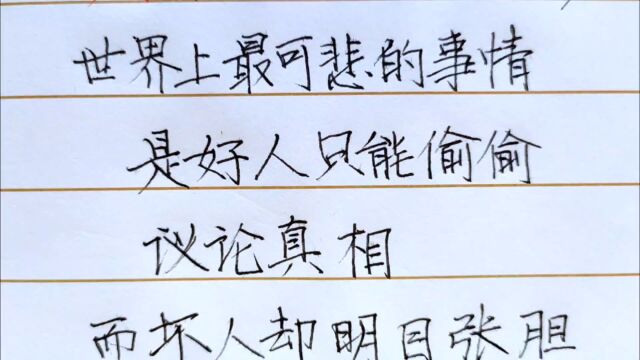 世界上最可悲的事情
是好人只能偷偷
议论真相
而坏人却明目张胆